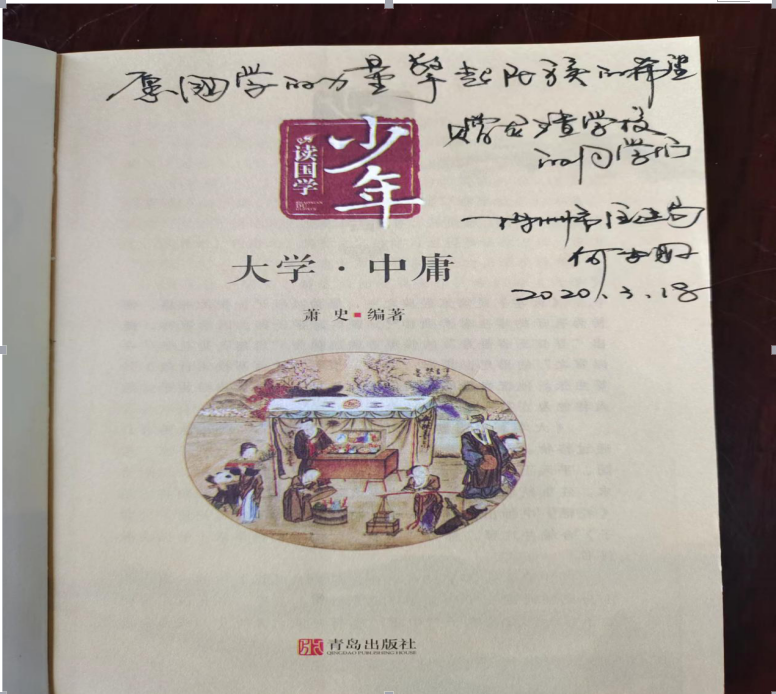 愿国学的力量擎起民族的希望
赠
学校
的同学们
市住建局
何
2020.3.18
少年
读国学
大学·中庸
萧史■编著
青岛出版社
QINGDAO PUBLISHING HOUSE